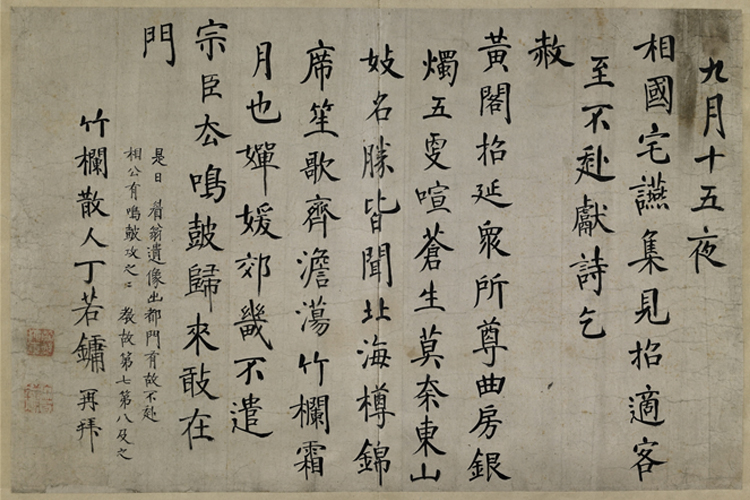 九月十五夜
相國宅讌集見招適客
至不赴獻詩乞
赦
黃閣招延眾所尊曲房銀
燭五喧蒼生莫奈東山
妓名勝皆聞北海樽錦
席笙歌齊澹蕩竹欄霜
月也嬋媛郊畿不遣
宗臣去鳴鼓歸來敢在
門
是日 眉翁遺像出都門有故不赴
相公有鳴鼓攻之〻 教故第七第八及之
竹欄散人丁若鏞 再拜